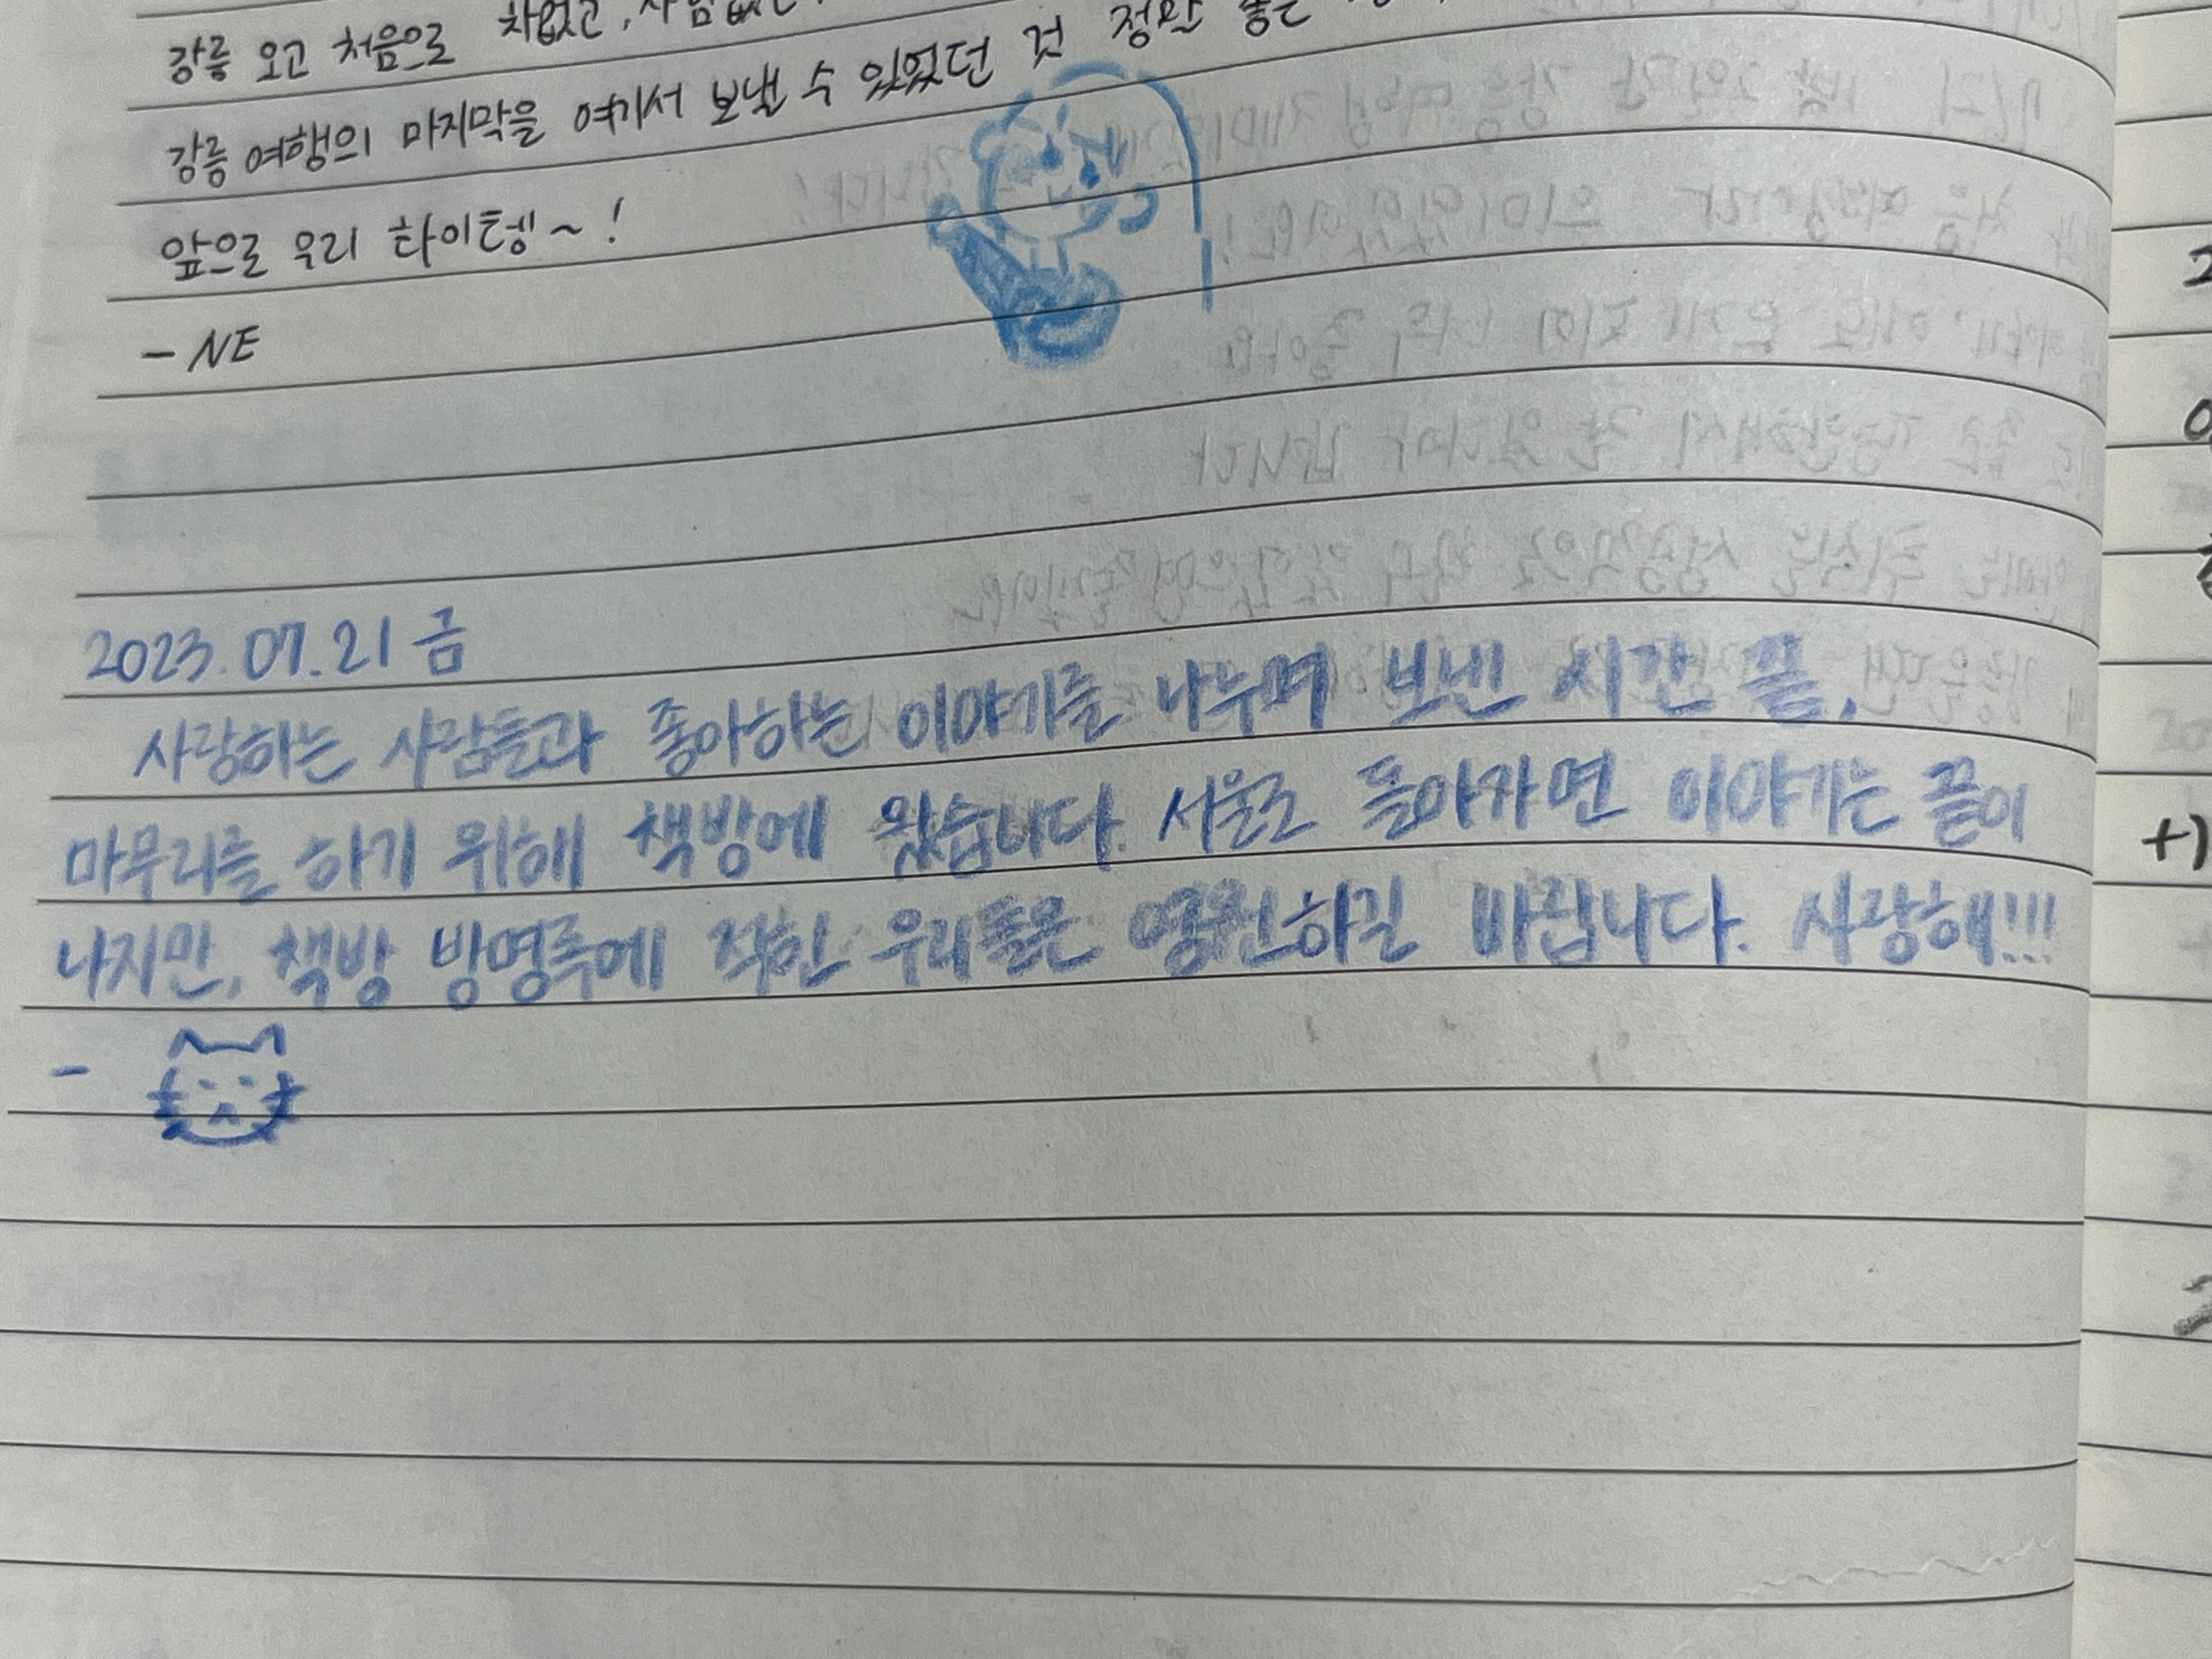 강릉 오고 처음으로 차없고,
강릉 여행의 마지막을 여기서 보낼 수 있었던 건 정말 좋은
앞으로 우리 화이텡~!
- NE
2023.07.21 금
사랑하는 사람들과 좋아하는 이야기를 나누며 보낸 시간 끝,
마무리를 하기 위해 책방에 왔습니다. 서울로 돌아가면 이야기는 끝이
나지만, 책방 방명록에 적힌 우리들은 영원하길 바랍니다. 사랑해!!!
-